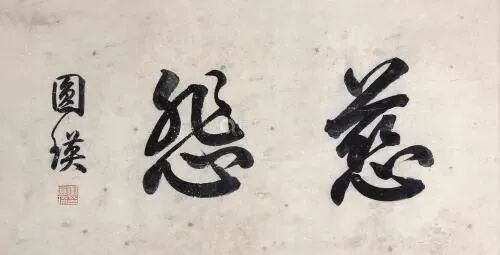 慈悲
圓瑛